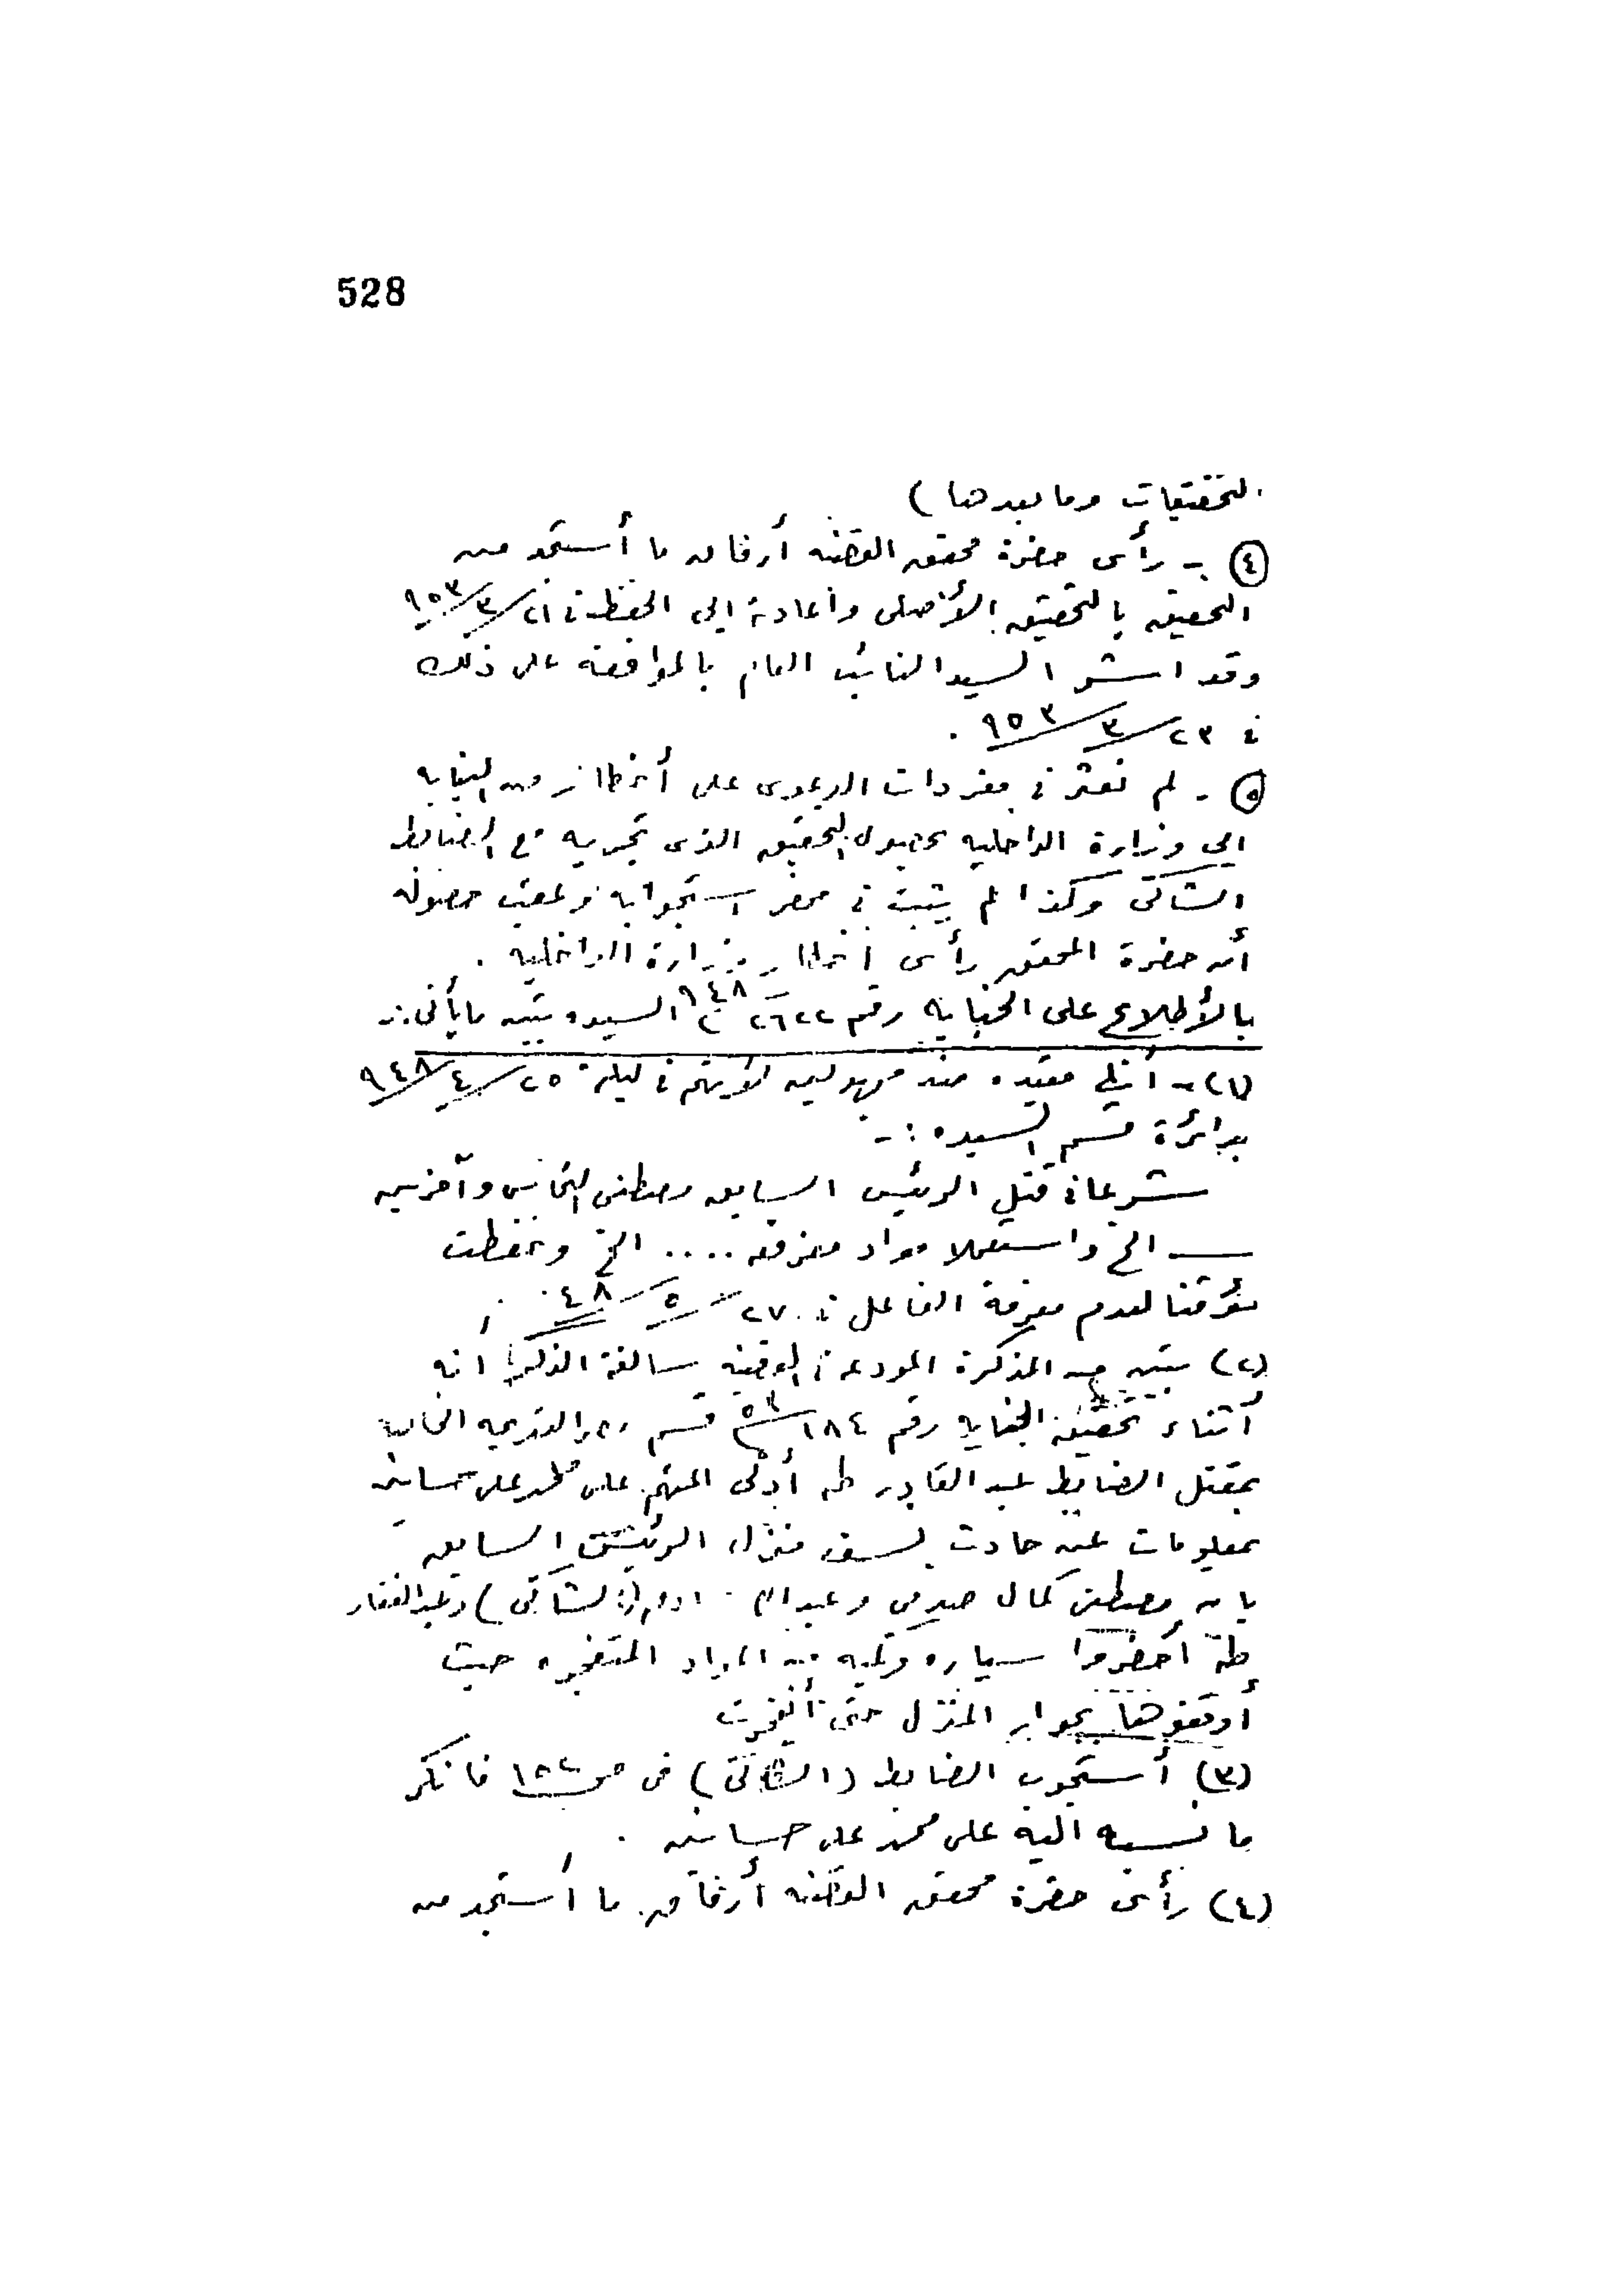 528
التحقيقات وما بعدها )
(٤) - رأى حضرة محقق القضية أرفاق ما أستجد من
التحقيق بالتحقيق الأصلى وأعادة الى الحفظ فى ٢١/٣/٩٥٣
وقد اشر السيد النائب العام بالموافقة على ذلك
فى ٢٣/٣/٩٥٣ .
(٥) - لم نعثر فى مفردات الدعوى على أخطار من النيابة
الى وزارة الداخلية بحصول التحقيق الذى تجريه مع الضابط
الشاكى وكذا لم يثبت فى محضر استجوابه
أن حضرة المحقق رأى اخطار وزارة الداخلية .
بالأطلاع على الجناية رقم ٢٦٢٢ ٩٤٨ السيدة تبين ما يأتى :-
(١) - أنها مقيدة ضد مجهولين لأنهم فى ليلة ٢٥/٤/٩٤٨
بدائرة قسم السيدة :-
شرعا فى قتل الرئيس السابق مصطفى النحاس وآخرين
الخ واستعملا مواد مفرقعة .... الخ وحفظت
مؤقتا لعدم معرفة الفاعل فى ٢٧/٥/٤٨ .
(٢) تبين من المذكرة المودعة فى القضية سالفة الذكر انه
أثناء تحقيق الجناية رقم ١٨٤ ٥٢ قسم مصر القديمة الخاصة
بمقتل الضابط عبد القادر طه أدلى المتهم على محمد على حسانين
بمعلومات عن حادث نسف منزل الرئيس السابق
بأن مصطفى كمال صدقى و (الشاكى) وعبد الغفار
طه أحضروا سيارة وكمية من المواد المتفجرة حيث
أوقفوها بجوار المنزل حتى أنفجرت
(٣) أستجوب الضابط (الشاكى) فى ص ١٥٢ فانكر
ما نسبه اليه على محمد على حسانين .
(٤) رأى حضرة محقق القضية أرفاق ما أستجد من